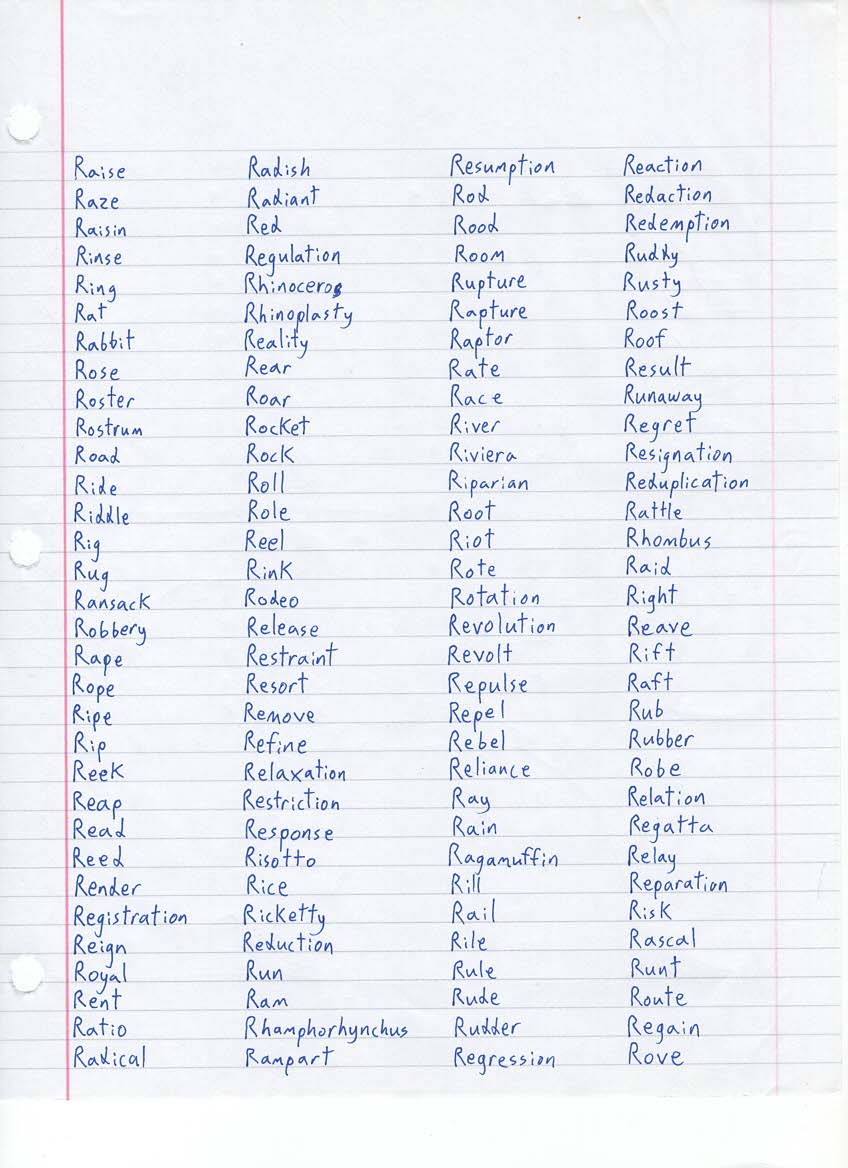 Raise Radish Resumption Reaction
Raze Radiant Rod Redaction
Raisin Red Rood Redemption
Rinse Regulation Room Ruddy
Ring Rhinoceros Rupture Rusty
Rat Rhinoplasty Rapture Roost
Rabbit Reality Raptor Roof
Rose Rear Rate Result
Roster Roar Race Runaway
Rostrum Rocket River Regret
Road Rock Riviera Resignation
Ride Roll Riparian Reduplication
Riddle Role Root Rattle
Rig Reel Riot Rhombus
Rug Rink Rote Raid
Ransack Rodeo Rotation Right
Robbery Release Revolution Reave
Rape Restraint Revolt Rift
Rope Resort Repulse Raft
Ripe Remove Repel Rub
Rip Refine Rebel Rubber
Reek Relaxation Reliance Robe
Reap Restriction Ray Relation
Read Response Rain Regatta
Reed Risotto Ragamuffin Relay
Render Rice Rill Reparation
Registration Ricketty Rail Risk
Reign Reduction Rile Rascal
Royal Run Rule Runt
Rent Ram Rude Route
Ratio Rhamphorhynchus Rudder Regain
Radical Rampart Regression Rove